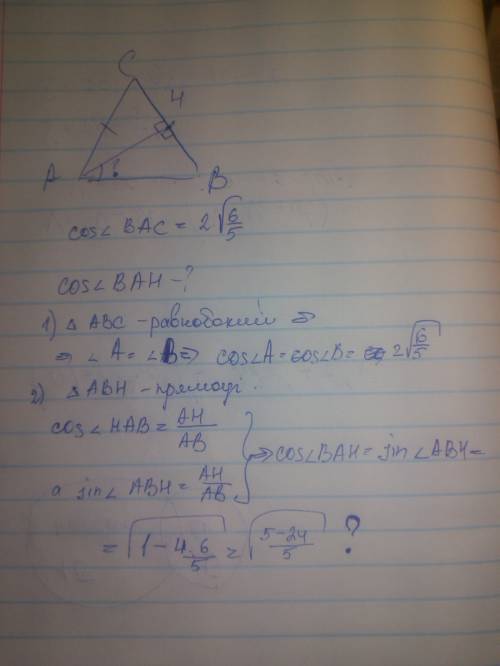 C
4
A ? B
cos∠BAC = 2√(6/5)
cos∠BAH - ?
1) △ ABC - равнобокий ⇒
⇒ ∠A = ∠B ⇒ cos∠A = cos∠B = 2√(6/5)
2) △ABH - прямоуг.
cos∠HAB = AH/AB
⇒ cos∠BAH = sin∠ABH =
а sin∠ABH = AH/AB
= √(1 - 4·6/5) = √((5-24)/5) ?